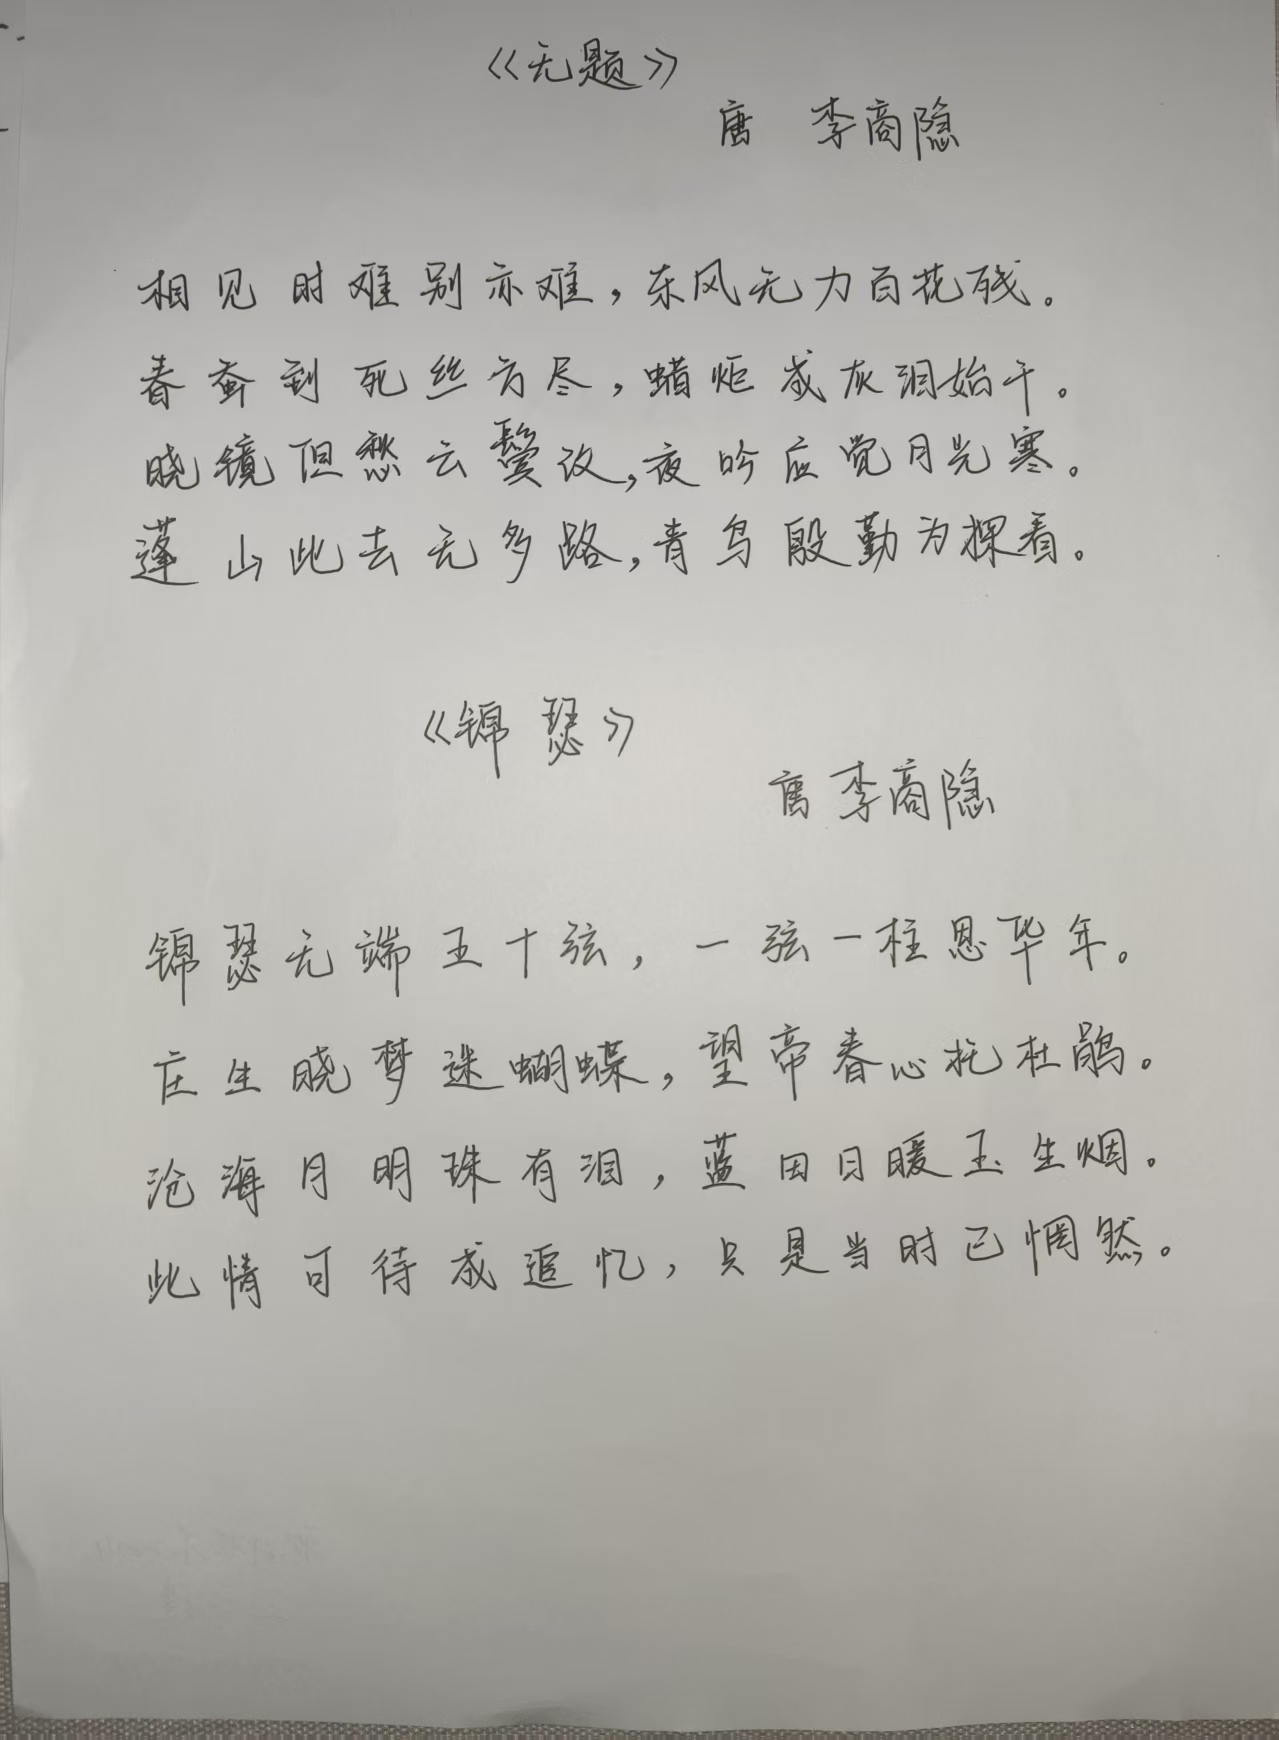 《无题》
唐 李商隐
相见时难别亦难，东风无力百花残。
春蚕到死丝方尽，蜡炬成灰泪始干。
晓镜但愁云鬓改，夜吟应觉月光寒。
蓬山此去无多路，青鸟殷勤为探看。
《锦瑟》
唐 李商隐
锦瑟无端五十弦，一弦一柱思华年。
庄生晓梦迷蝴蝶，望帝春心托杜鹃。
沧海月明珠有泪，蓝田日暖玉生烟。
此情可待成追忆，只是当时已惘然。